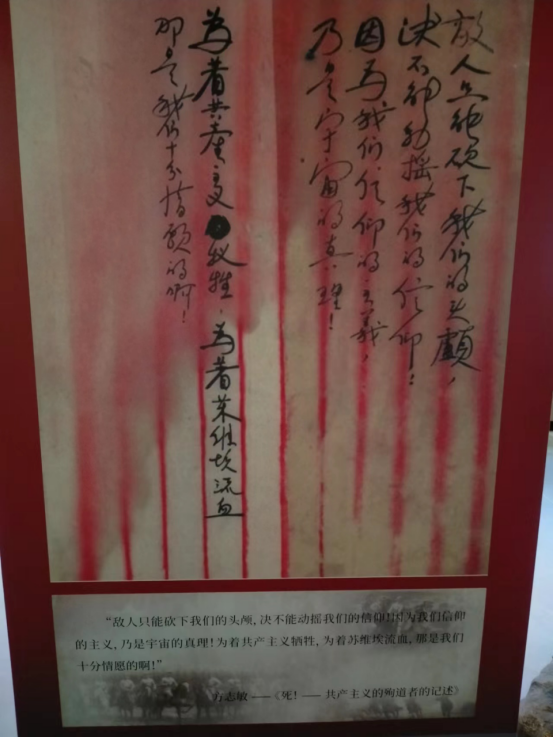 敌人只能砍下我们的头颅，
决不能动摇我们的信仰！
因为我们信仰的主义，
乃是宇宙的真理！
为着共产主义牺牲，为着苏维埃流血
那是我们十分情愿的啊！
“敌人只能砍下我们的头颅，决不能动摇我们的信仰！因为我们信仰
的主义，乃是宇宙的真理！为着共产主义牺牲，为着苏维埃流血，那是我们
十分情愿的啊！”
方志敏 ——《死！—— 共产主义的殉道者的记述》